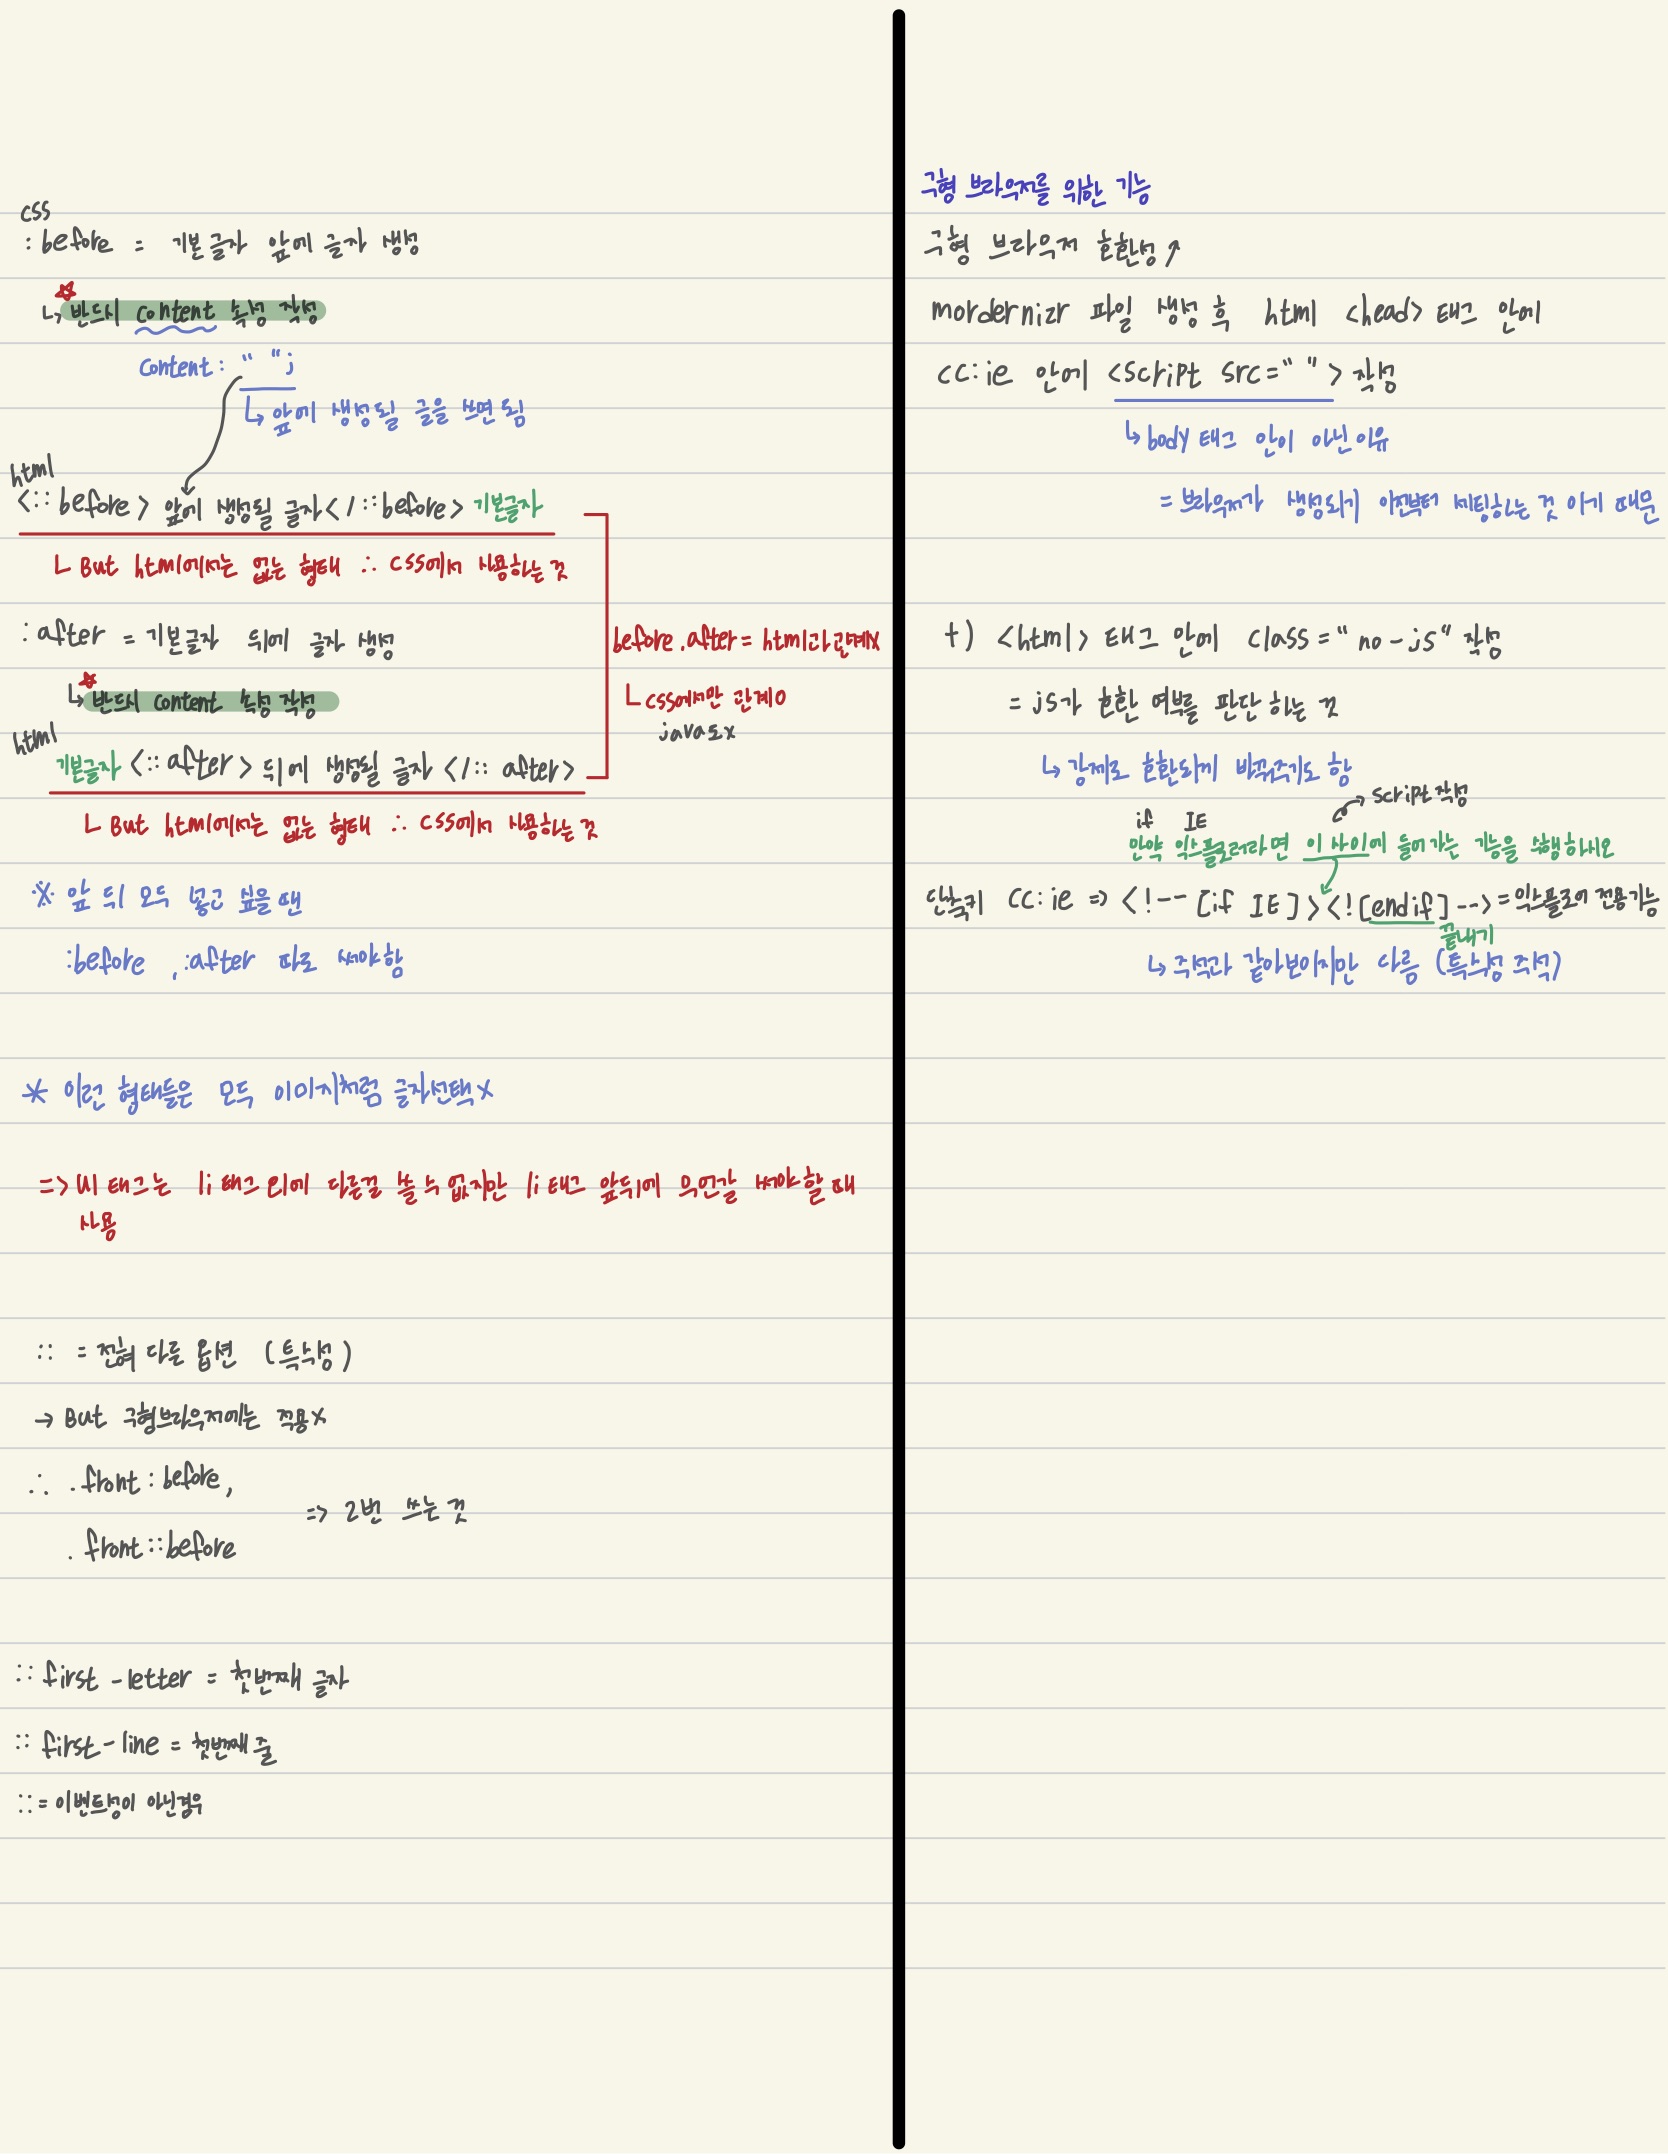 css
:before = 기본글자 앞에 글자 생성
↳ ☆ 반드시 content 속성 작성
content: " ";
↳ 앞에 생성될 글을 쓰면 됨
html
<::before> 앞에 생성될 글자 </::before> 기본글자
ㄴ But html에서는 없는 형태 ∴ css에서 사용하는 것
:after = 기본글자 뒤에 글자 생성
↳ ☆ 반드시 content 속성 작성
html
기본글자 <::after> 뒤에 생성될 글자 </::after>
ㄴ But html에서는 없는 형태 ∴ css에서 사용하는 것
before, after = html과 관계x
ㄴ css에서만 관계o
java도x
※ 앞 뒤 모두 넣고 싶을 땐
:before , :after 따로 써야함
* 이런 형태들은 모두 이미지처럼 글자선택x
=> ul 태그는 li 태그 외에 다른걸 쓸 수 없지만 li 태그 앞뒤에 무언갈 써야할 때
사용
:: = 전혀 다른 옵션 (특수성)
→ But 구형브라우저에는 적용x
∴ .front:before,
.front::before
=> 2번 쓰는 것
::first-letter = 첫번째 글자
::first-line = 첫번째 줄
:: = 이벤트성이 아닌경우
구형 브라우저를 위한 기능
구형 브라우저 호환성↗
mordernizr 파일 생성 후 html <head> 태그 안에
cc:ie 안에 <script src=" "> 작성
↳ body 태그 안이 아닌이유
= 브라우저가 생성되기 이전부터 세팅하는 것 이기 때문
+) <html> 태그 안에 class="no-js" 작성
= js가 호환 여부를 판단 하는 것
↳ 강제로 호환되게 바꿔주기도 함
script 작성
if IE
만약 익스플로러라면 이 사이에 들어가는 기능을 수행하시오
단축키 cc:ie => <!--[if IE]><![endif]--> = 익스플로어 전용기능
끝내기
↳ 주석과 같아보이지만 다름 (특수성 주석)